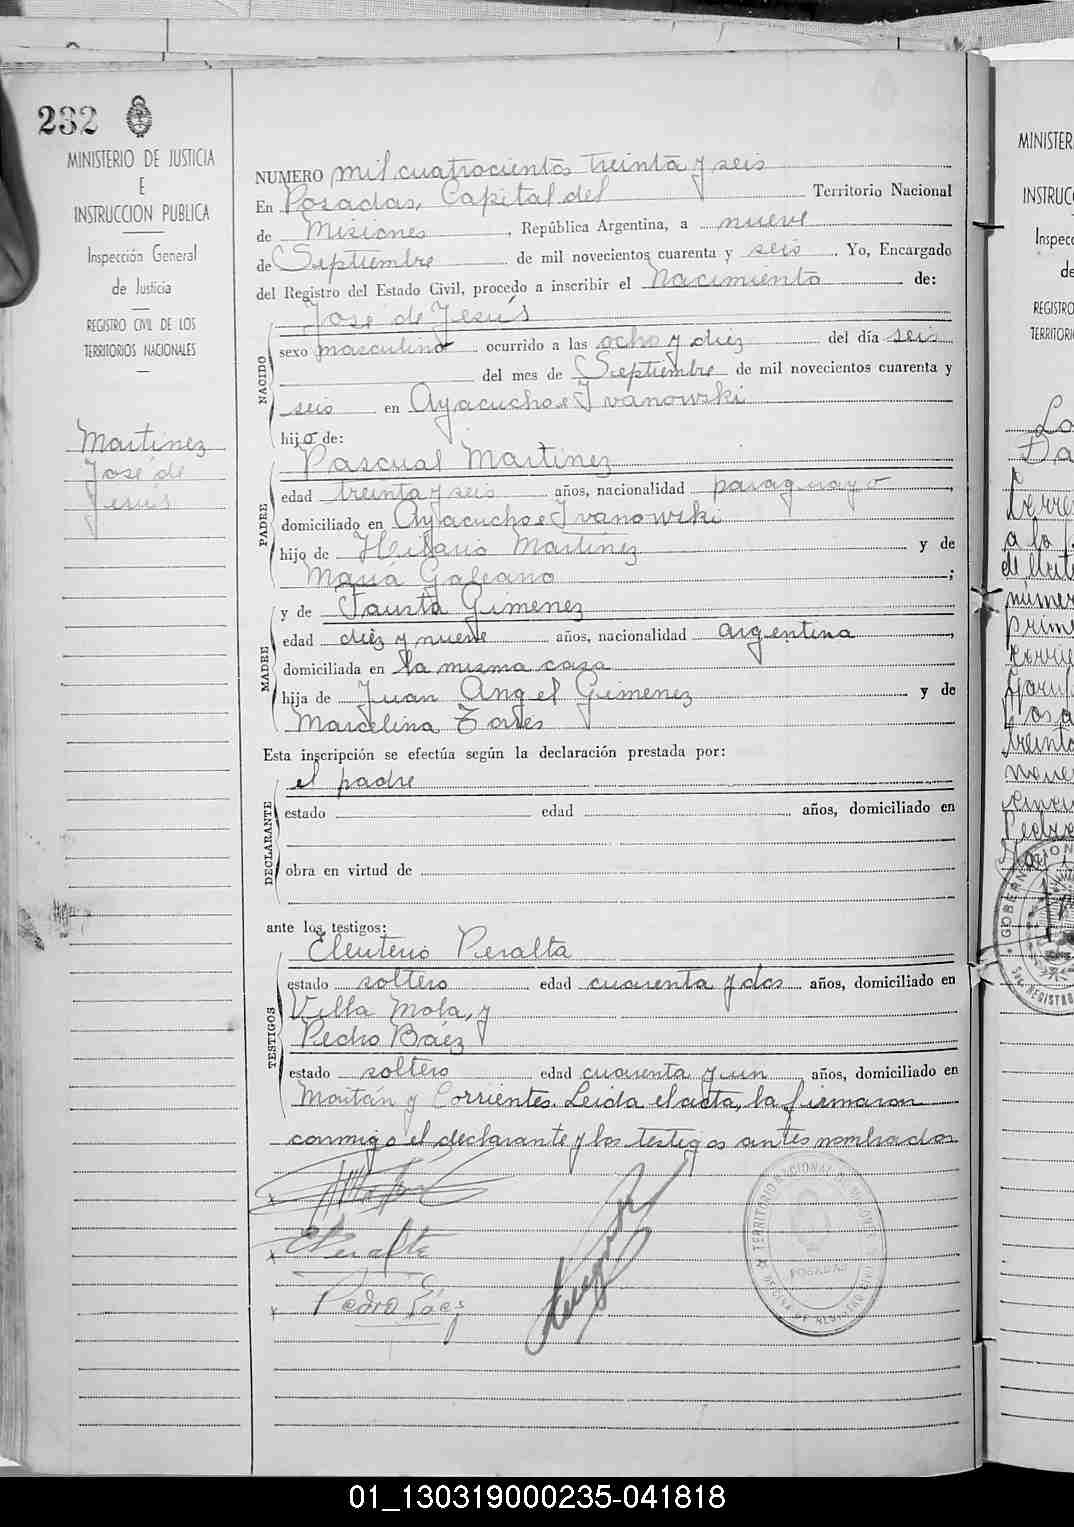 232
MINISTERIO DE JUSTICIA
E
INSTRUCCION PUBLICA
Inspección General
de Justicia
REGISTRO CIVIL DE LOS
TERRITORIOS NACIONALES
Martinez
José de
Jesús
NUMERO mil cuatrocientos treinta y seis
En Posadas, Capital del Territorio Nacional
de Misiones, República Argentina, a nueve
de Septiembre de mil novecientos cuarenta y seis. Yo, Encargado
del Registro del Estado Civil, procedo a inscribir el Nacimiento de:
José de Jesús
NACIDO
sexo masculino ocurrido a las ocho y diez del día seis
del mes de Septiembre de mil novecientos cuarenta y
seis en Ayacucho e Ivanowski
hijo de:
Pascual Martinez
PADRE
edad treinta y seis años, nacionalidad paraguayo,
domiciliado en Ayacucho e Ivanowski
hijo de Hilario Martinez y de
María Galeano;
y de Fausta Gimenez
MADRE
edad diez y nueve años, nacionalidad argentina,
domiciliada en la misma casa
hija de Juan Angel Gimenez y de
Marcelina Torres
Esta inscripción se efectúa según la declaración prestada por:
el padre
DECLARANTE
estado edad años, domiciliado en
obra en virtud de
ante los testigos:
Eleuterio Peralta
TESTIGOS
estado soltero edad cuarenta y dos años, domiciliado en
Villa Mola, y
Pedro Báez
estado soltero edad cuarenta y un años, domiciliado en
Maitán y Corrientes. Leida el acta, la firmaron
conmigo el declarante y los testigos antes nombrados
EPeralta
Pedro Báez
TERRITORIO NACIONAL DE MISIONES
POSADAS
OFICINA DE REGISTRO CIVIL
MINISTER
INSTRUC
Inspec
de
REGISTRO
TERRITORI
GOBERNACION
01_130319000235-041818